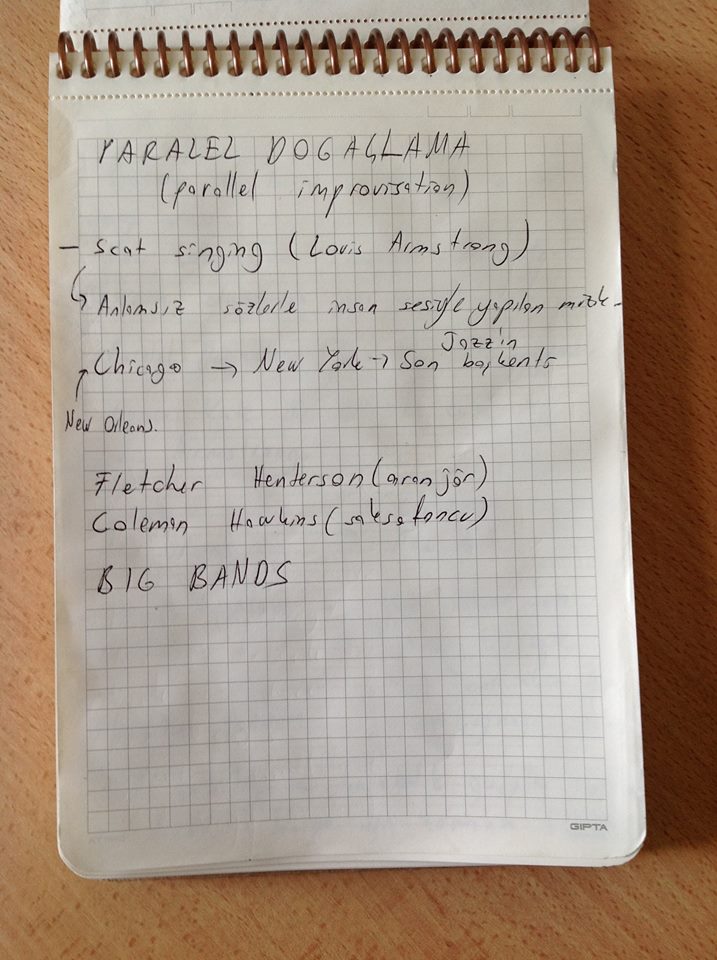 PARALEL DOGAÇLAMA
(parallel improvisation)
- Scat singing (Louis Armstrong)
Anlamsız sözlerle insan sesiyle yapılan müzik.
Jazz'ın
Chicago → New York → Son başkenti
New Orleans.
Fletcher Henterson (aranjör)
Coleman Hawkins (saksafoncu)
BIG BANDS
GIPTA